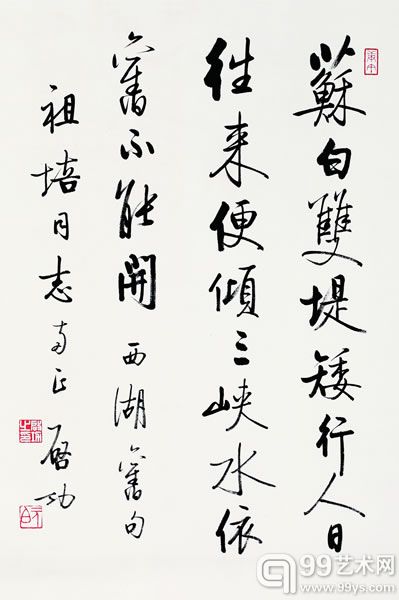 蘇白雙堤矮行人日
往来便傾三峽水依
舊不能開 西湖舊句
祖培同志正 啓功
99艺术网
www.99ys.com